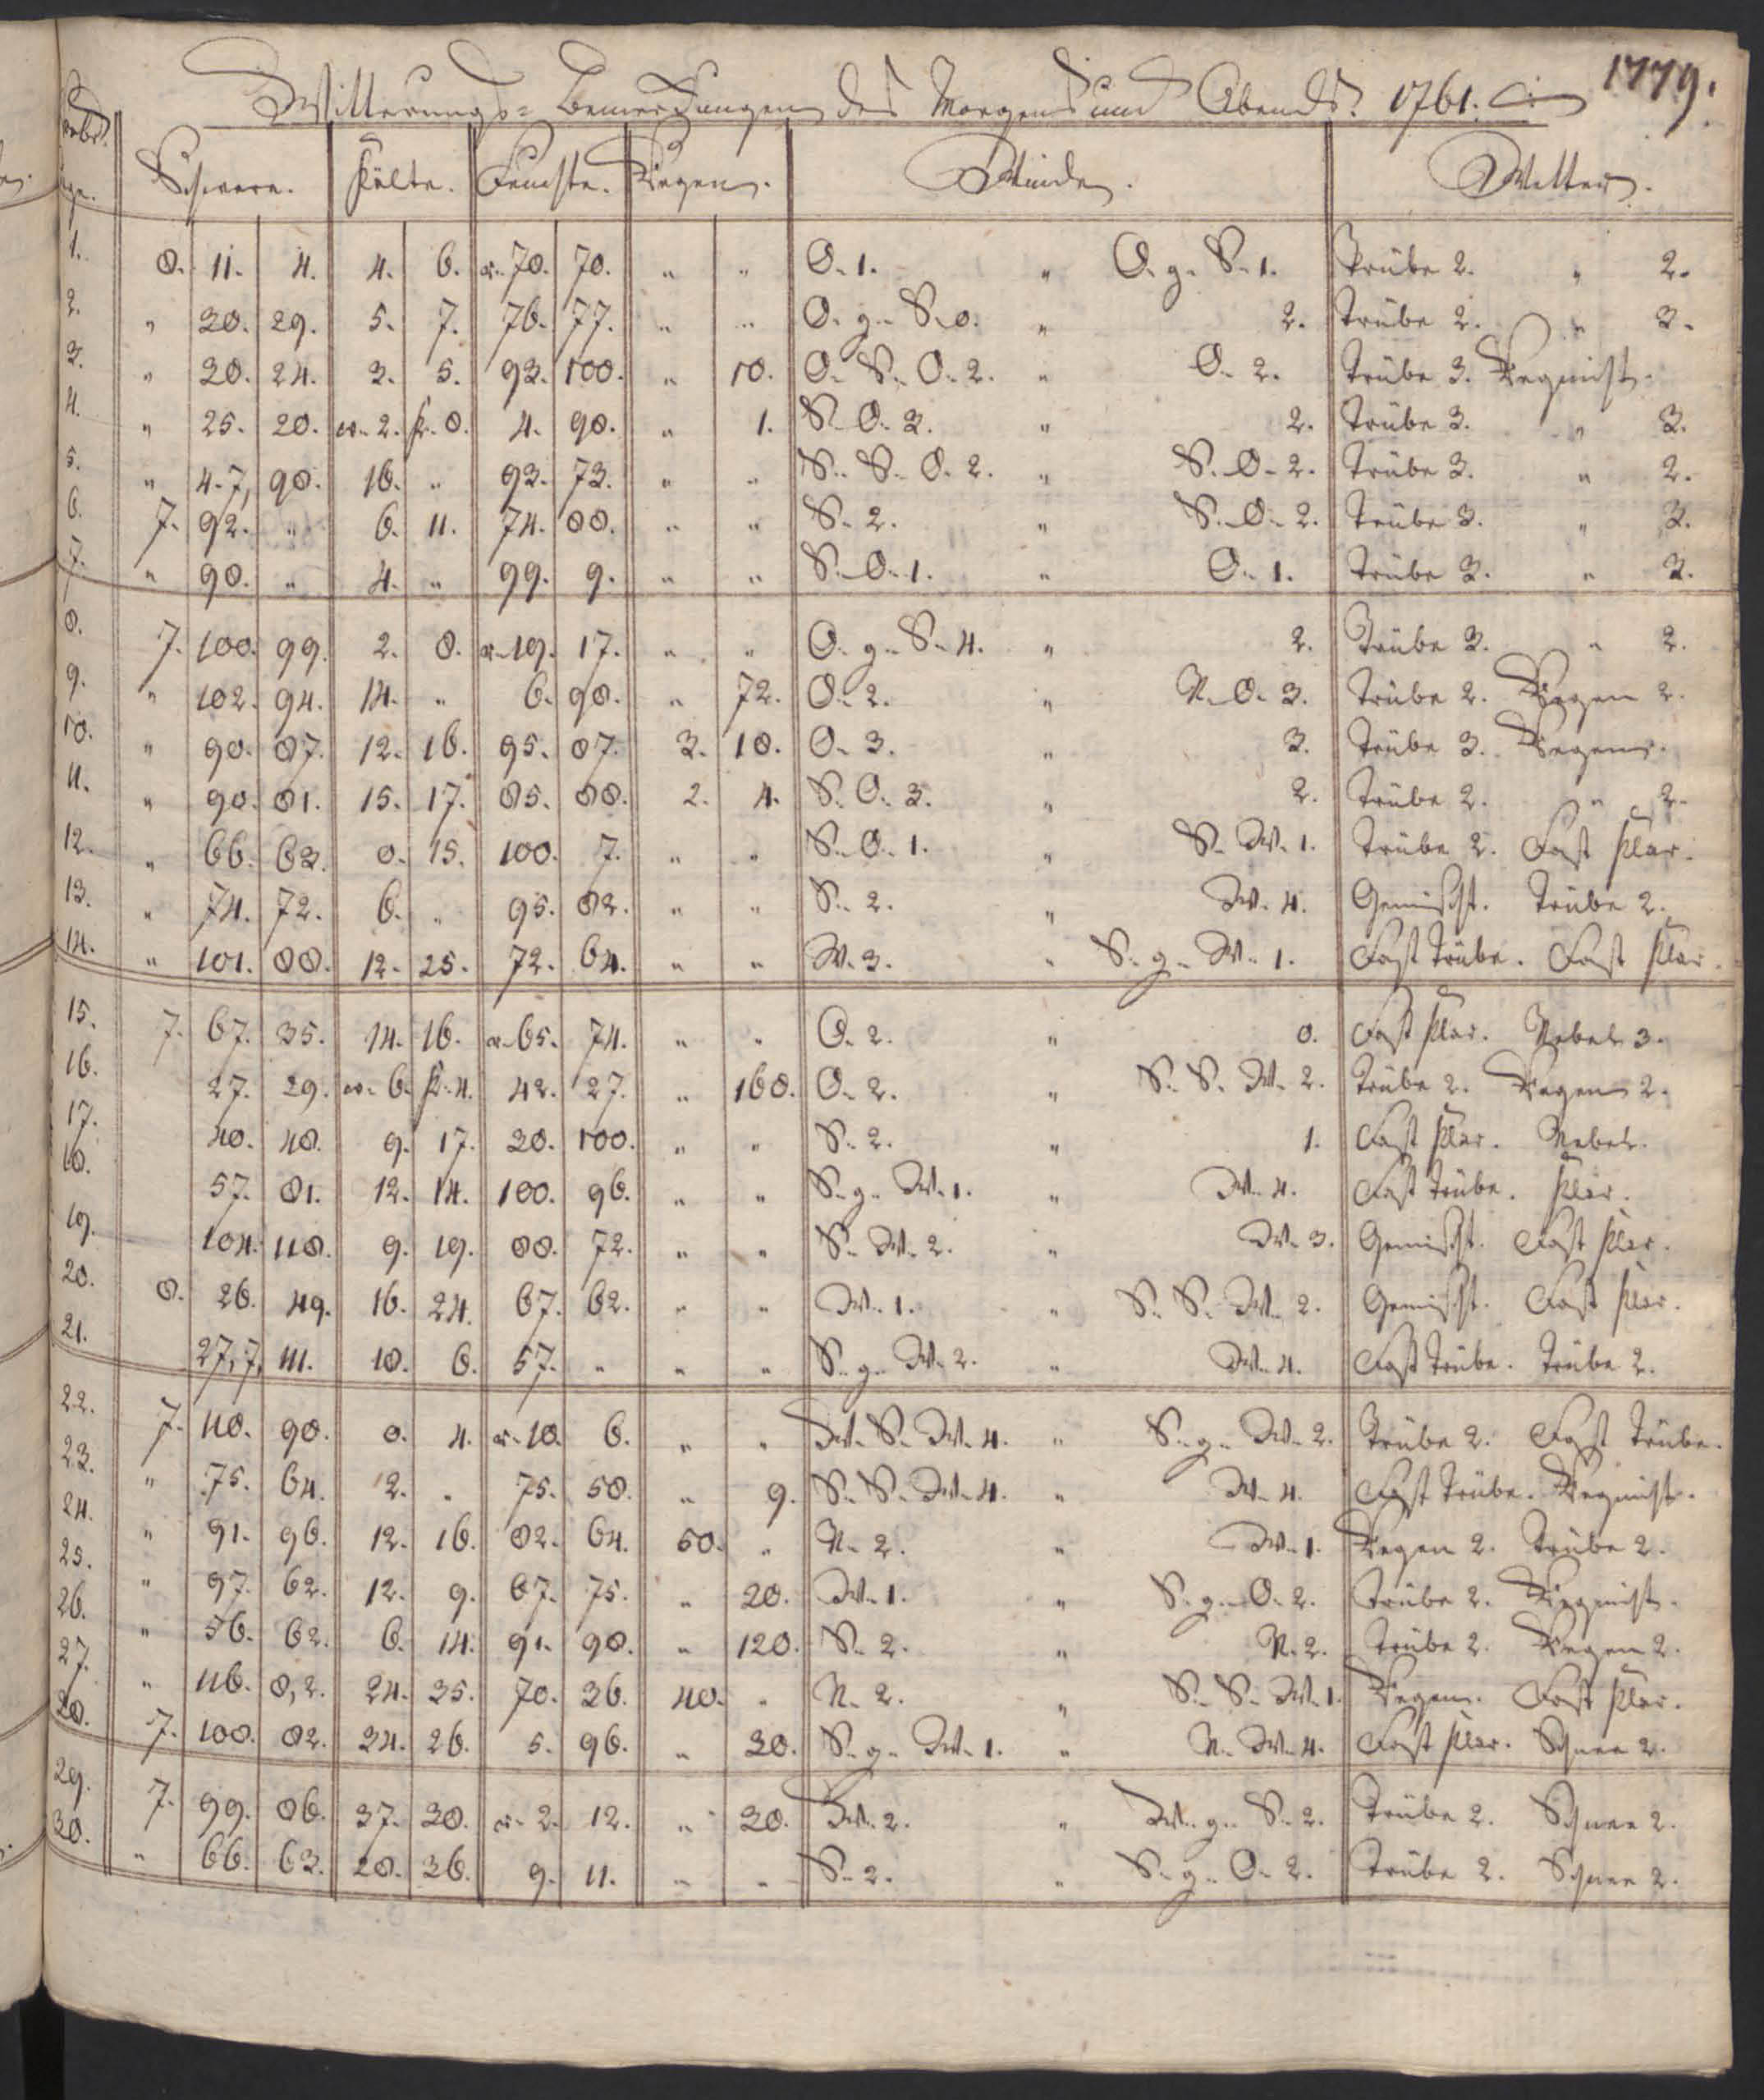 1779.
Witterungs-Bemerkungen des Morgens und Abends. 1761.
Schwere. Kälte. Feuchte. Regen. Winde. Wetter.
1. 8. 11. 4. 4. 6. 70. 70. " " O. 1. " O. g. S. 1. Trübe 2. " 2.
2. " 30. 29. 5. 7. 76. 77. " " O. g. S. 0. " 2. Trübe 2. " 3.
3. " 30. 24. 3. 5. 93. 100. " 10. O. S. O. 2. " O. 2. Trübe 3. Regnicht.
4. " 25. 20. w. 2. k. 8. 4. 98. " 1. S. O. 3. " 2. Trübe 3. " 3.
5. " 4. 7, 98. 16. " 93. 73. " " S. S. O. 2. " S. O. 2. Trübe 3. " 2.
6. 7. 92. " 6. 11. 74. 88. " " S. 2. " S. O. 2. Trübe 3. " 3.
7. " 90. " 4. " 99. 9. " " S. O. 1. " O. 1. Trübe 3. " 3.
8. 7. 100. 99. 2. 8. 19. 17. " " O. g. S. 4. " 2. Trübe 3. " 2.
9. " 102. 94. 14. " 6. 98. " 72. O. 2. " N. O. 3. Trübe 2. Regen 2.
10. " 90. 87. 12. 16. 95. 87. 3. 18. O. 3. " 3. Trübe 3. Regen.
11. " 90. 81. 15. 17. 85. 88. 2. 4. S. O. 3. " 2. Trübe 2. " 2.
12. " 66. 63. 8. 15. 100. 7. " " S. O. 1. " S. W. 1. Trübe 2. Fast klar.
13. " 74. 72. 6. " 95. 82. " " S. 2. " W. 4. Gemischt. Trübe 2.
14. " 101. 88. 12. 25. 72. 64. " " W. 3. " S. g. W. 1. Fast trübe. Fast klar.
15. 7. 67. 35. 14. 16. 65. 74. " " O. 2. " 0. Fast klar. Nebel 3.
16. 27. 29. w. 6. k. 4. 42. 27. " 160. O. 2. " S. S. W. 2. Trübe 2. Regen 2.
17. 40. 48. 9. 17. 20. 100. " " S. 2. " 1. Fast klar. Nebel.
18. 57. 81. 12. 14. 100. 96. " " S. g. W. 1. " W. 4. Fast trübe. klar.
19. 104. 118. 9. 19. 88. 72. " " S. W. 2. " W. 3. Gemischt. Fast klar.
20. 8. 26. 49. 16. 24. 67. 62. " " W. 1. " S. S. W. 2. Gemischt. Fast klar.
21. 27, 7, 111. 18. 6. 57. " " " S. g. W. 2. " W. 4. Fast trübe. Trübe 2.
22. 7. 110. 90. 0. 4. 18. 6. " " W. S. W. 4. " S. g. W. 2. Trübe 2. Fast trübe.
23. " 75. 64. 2. " 75. 58. " 9. S. S. W. 4. " W. 4. Fast trübe. Regnicht.
24. " 91. 96. 12. 16. 82. 64. 50. " N. 2. " W. 1. Regen 2. Trübe 2.
25. " 97. 62. 12. 9. 67. 75. " 20. W. 1. " S. g. O. 2. Trübe 2. Regnicht.
26. " 56. 62. 6. 14. 91. 90. " 120. S. 2. " N. 2. Trübe 2. Regen 2.
27. " 116. 8, 2. 24. 35. 70. 36. 40. " N. 2. " S. S. W. 1. Regen. Fast klar.
28. 7. 108. 82. 34. 26. 5. 96. " 30. S. g. W. 1. " N. W. 4. Fast klar. Schnee 2.
29. 7. 99. 86. 37. 30. 2. 12. " 30. W. 2. " W. g. S. 2. Trübe 2. Schnee 2.
30. " 66. 63. 28. 36. 9. 11. " " S. 2. " S. g. O. 2. Trübe 2. Schnee 2.